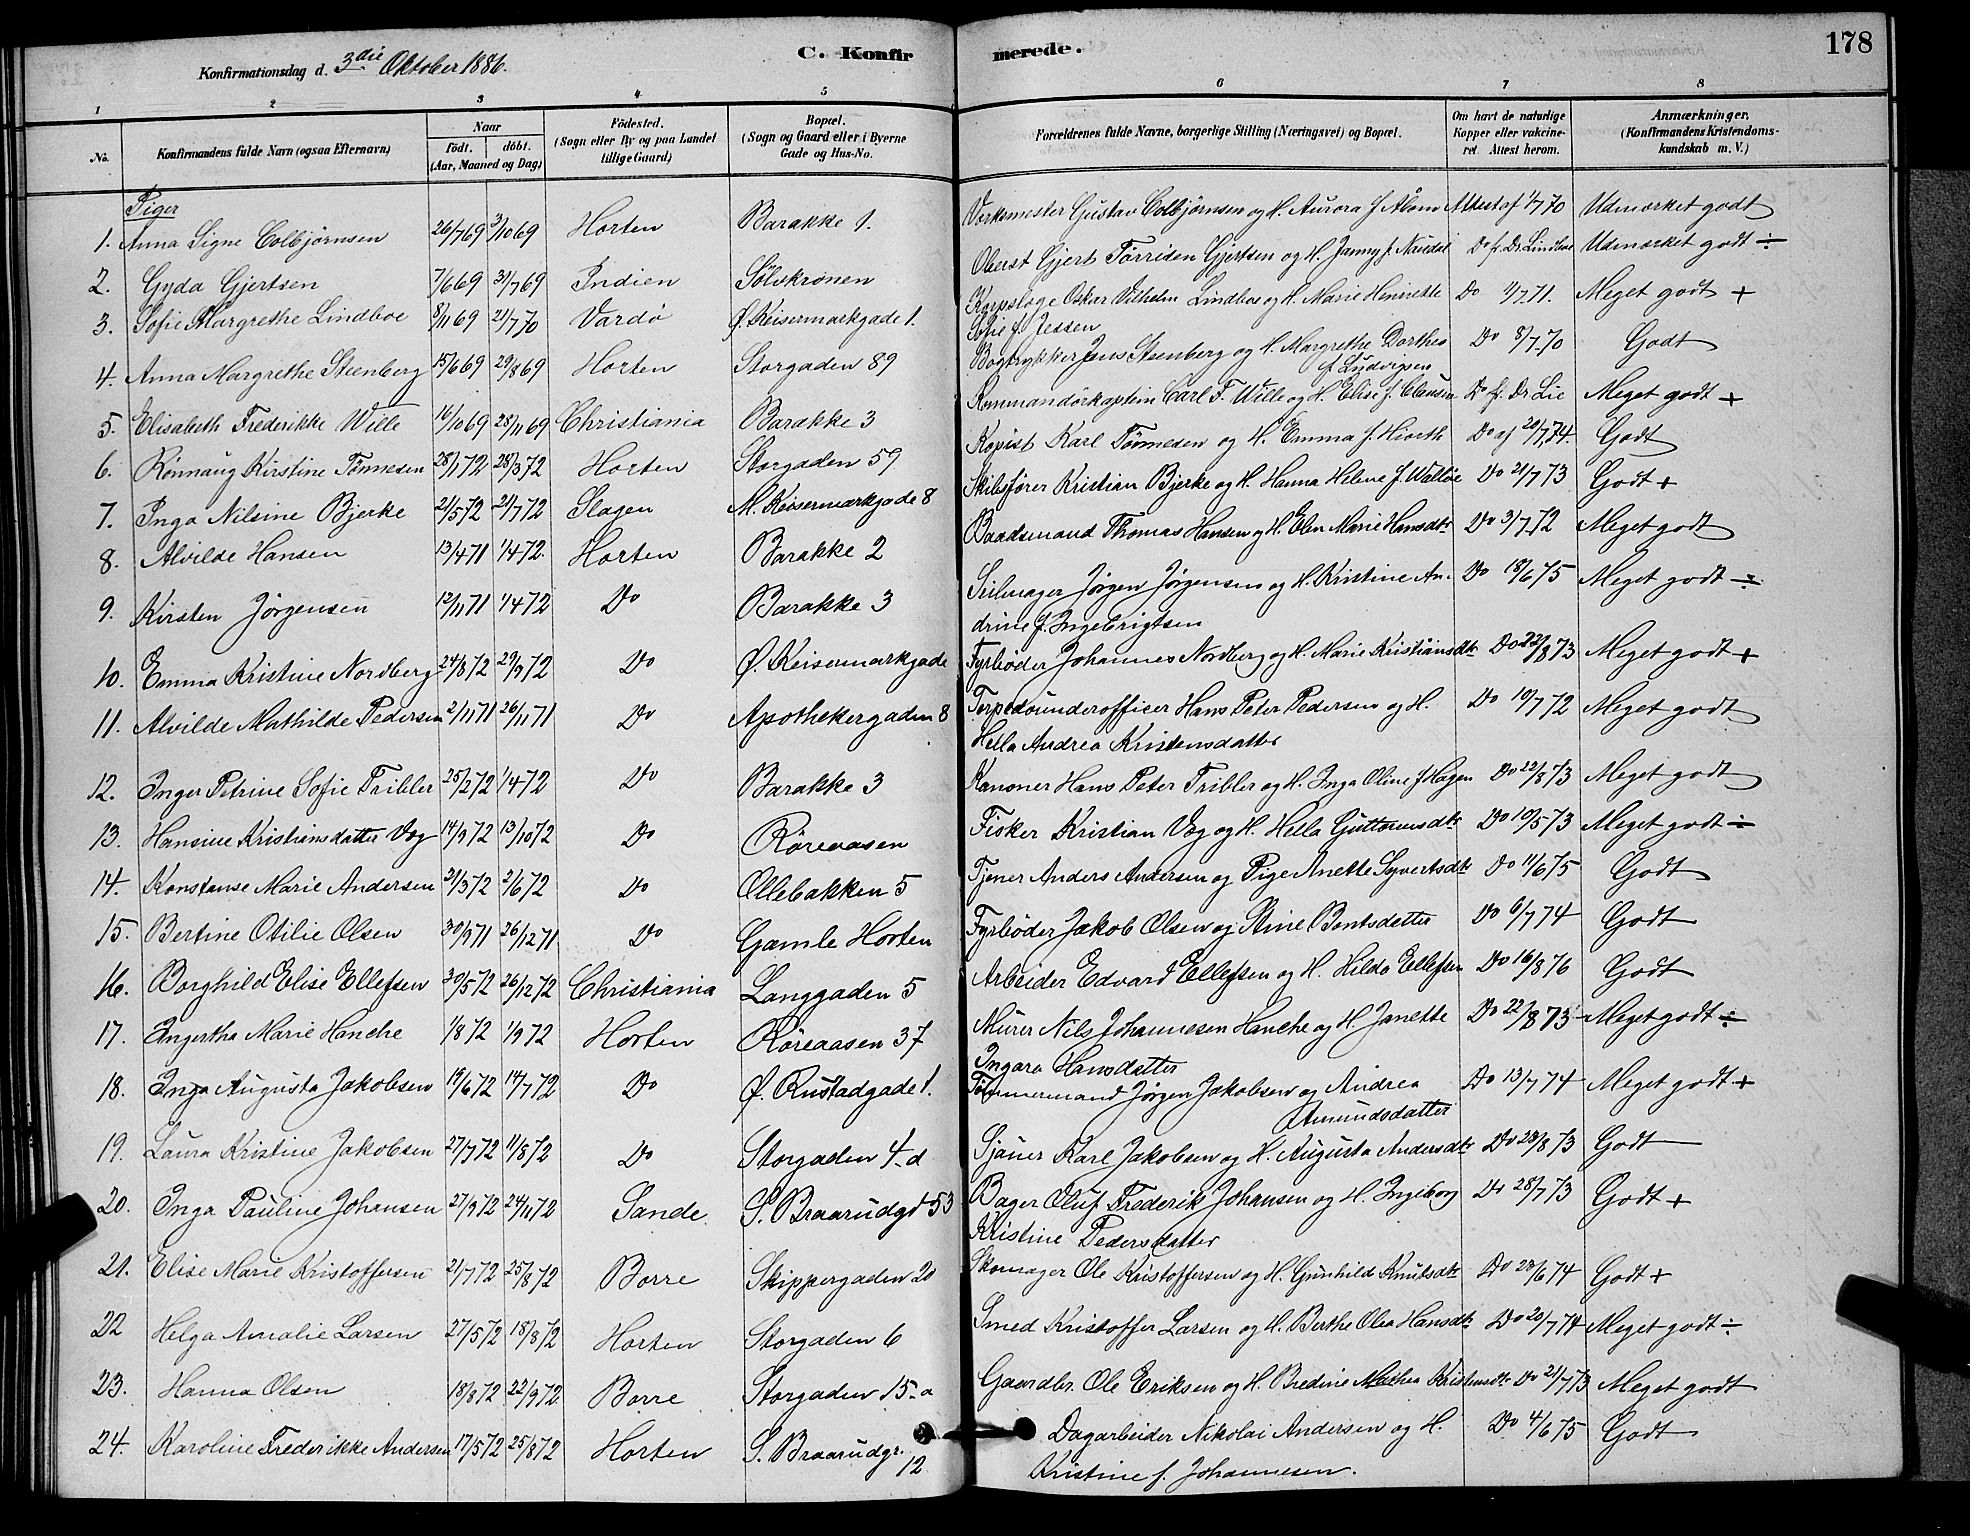 178
Konfirmationsdag d. 3die Oktober 1886.
C. Konfirmerede.
1 2 3 4 5 6 7 8
No. | Konfirmandens fulde Navn (ogsaa Efternavn) | Naar født. døbt. (Aar, Maaned og Dag) | Fødested. (Sogn eller By og paa Landet tillige Gaard) | Bopæl. (Sogn og Gaard eller i Byerne Gade og Hus-No. | Forældrenes fulde Navne, borgerlige Stilling (Næringsvei) og Bopæl. | Om havt de naturlige Kopper eller vakcineret. Attest herom. | Anmærkninger. (Konfirmandens Kristendomskundskab m. V.)
Piger
1. Anna Signe Colbjørnsen 26/7 69 3/10 69 Horten Barakke 1. Verksmester Gustav Colbjørnsen og H. Aurora f. Alom Attest af 1/7 70 Udmærket godt
2. Gyda Gjertsen 7/6 69 31/7 69 Indien Sølvkronen Oberst Gjert Törriden Gjertsen og H. Janny f. Naudal Do fr. Dr. Lindboe Udmærket godt ÷
3. Sofie Margrethe Lindboe 8/11 69 21/7 70 Vardø Ø. Keisermarkgade 1. Korpslæge Oskar Vilhelm Lindboe og H. Marie Henriette Do 11/7 71. Meget godt +
Sofie f. Jessen
4. Anna Margrethe Steenberg 15/6 69 29/8 69 Horten Storgaden 89 Bogtrykker Jens Steenberg og H. Margrethe Dorthea Do 8/7 70 Godt
f. Ludvigsen
5. Elisabeth Frederikke Wille 16/10 69 28/11 69 Christiania Barakke 3 Kommandørkaptein Carl F. Wille og H. Elise f. Clausen Do fr. Dr. Lie Meget godt +
6. Rønnaug Kirstine Tønnesen 28/1 72 28/3 72 Horten Storgaden 59 Kopist Karl Tønnesen og H. Emma f. Hiorth Do af 20/7 74. Godt
7. Inga Nilsine Bjerke 21/5 72 21/7 72 Slagen M. Keisermarkgade 8 Skibsfører Kristian Bjerke og H. Hanna Helene f. Walløe Do 21/7 73 Godt +
8. Alvilde Hansen 13/4 71 1/4 72. Horten Barakke 2 Baadsmand Thomas Hansen og H. Elen Marie Hansdtr Do 3/7 72 Meget godt
9. Kirsten Jørgensen 12/11 71 1/4 72 Do Barakke 3 Seilmager Jørgen Jørgensen og H. Kristine An- Do 18/6 75 Meget godt ÷
drine f. Ingebrigtsen
10. Emma Kristine Nordberg 24/8 72 29/9 72 Do Ø. Keisermarkgade Fyrbøder Johannes Nordberg og H. Marie Kristiansdtr Do 22/8 73 Meget godt +
11. Alvilde Mathilde Pedersen 2/11 71 26/11 71 Do Apothekergaden 8 Torpedounderofficer Hans Peter Pedersen og H. Do 10/7 72 Meget godt
Hella Andrea Kristensdatter
12. Inger Petrine Sofie Tribler 25/2 72 1/4 72 Do Barakke 3 Kanoner Hans Peter Tribler og H. Inga Oline f. Hagen Do 22/8 73 Meget godt
13. Hansine Kristiansdatter Vog 14/9 72 13/10 72 Do Røreaasen Fisker Kristian Vog og H. Hella Guttormsdtr Do 10/5 73 Meget godt ÷
14. Konstanse Marie Andersen 31/3 72 2/6 72 Do Ollebakken 5 Tjener Anders Andersen og Pige Anette Syvertsdtr Do 11/6 75 Godt
15. Bertine Otilie Olsen 30/9 71 26/12 71 Do Gamle Horten Fyrbøder Jakob Olsen og Stine Bentsdatter Do 6/7 74 Godt
16. Borghild Elise Ellefsen 30/5 72 26/12 72 Christiania Langgaden 5 Arbeider Edvard Ellefsen og H. Hilda Ellefsen Do 16/8 76 Godt
17. Ingertha Marie Hanche 1/8 72 1/9 72 Horten Røreaasen 37 Murer Nils Johannesen Hanche og H. Janette Do 22/8 73 Meget godt ÷
Ingara Hansdatter
18. Inga Augusta Jakobsen 19/6 72 14/7 72 Do Ø. Rustadgade 1. Tømmermand Jørgen Jakobsen og Andrea Do 13/7 74 Meget godt +
Amundsdatter
19. Laura Kristine Jakobsen 27/7 72 11/8 72 Do Storgaden 4-d Sjauer Karl Jakobsen og H. Augusta Andersdtr Do 28/8 73 Godt
20. Inga Pauline Johansen 27/9 72 24/11 72 Sande. S. Braarudgd 53 Bager Oluf Frederik Johansen og H. Ingeborg Do 28/7 73 Godt +
Kristine Pedersdatter
21. Elise Marie Kristoffersen 21/7 72 25/8 72 Borre Skippergaden 20 Skomager Ole Kristoffersen og H. Gunhild Knutsdtr Do 28/6 74 Godt +
22 Helga Amalie Larsen 27/5 72 18/8 72 Horten Storgaden 6 Smed Kristoffer Larsen og H. Berthe Olea Hansdtr Do 20/7 74 Meget godt ÷
23. Hanna Olsen 18/8 72 22/9 72 Borre Storgaden 15-a Gaardbr. Ole Eriksen og H. Bredine Mathea Kristensdtr Do 21/7 73 Meget godt
24. Karoline Frederikke Andersen 17/5 72 25/8 72 Horten S. Braarudgr. 12 Dagarbeider Nikolai Andersen og H. Do 4/6 75 Godt
Kristine f. Johannesen.